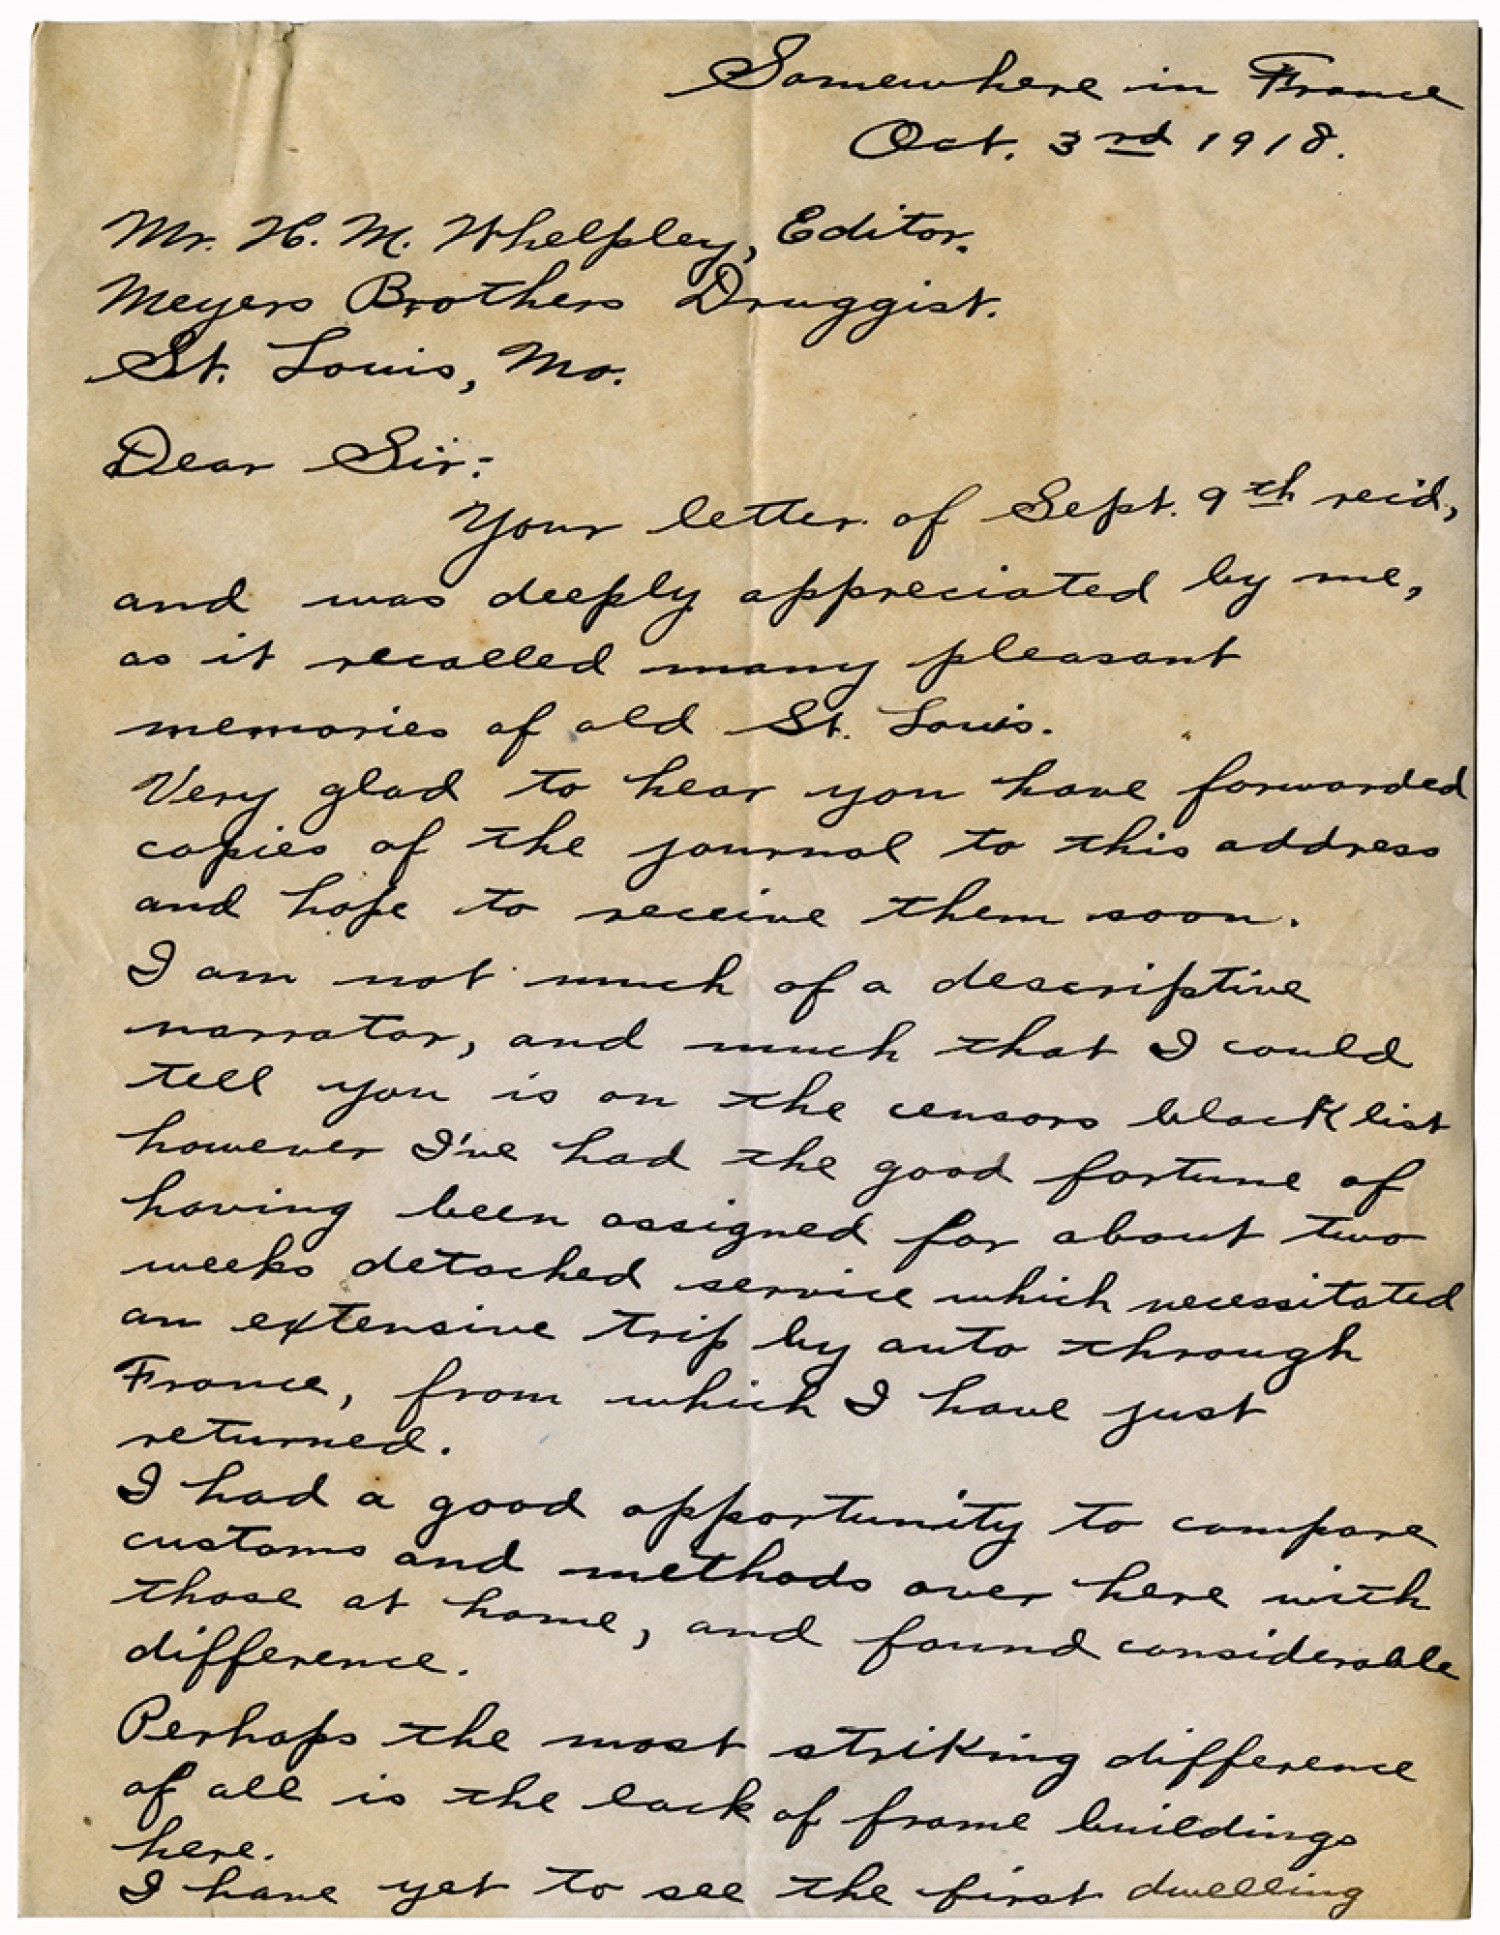 Somewhere in France
Oct. 3rd 1918.
Mr. H. M. Whelpley, Editor.
Meyers Brothers Druggist.
St. Louis, Mo.
Dear Sir:-
Your letter of Sept. 9th rec'd,
and was deeply appreciated by me,
as it recalled many pleasant
memories of old St. Louis.
Very glad to hear you have forwarded
copies of the journal to this address
and hope to receive them soon.
I am not much of a descriptive
narrator, and much that I could
tell you is on the censors black list
however I've had the good fortune of
having been assigned for about two
weeks detached service which necessitated
an extensive trip by auto through
France, from which I have just
returned.
I had a good opportunity to compare
customs and methods over here with
those at home, and found considerable
difference.
Perhaps the most striking difference
of all is the lack of frame buildings
here.
I have yet to see the first dwelling